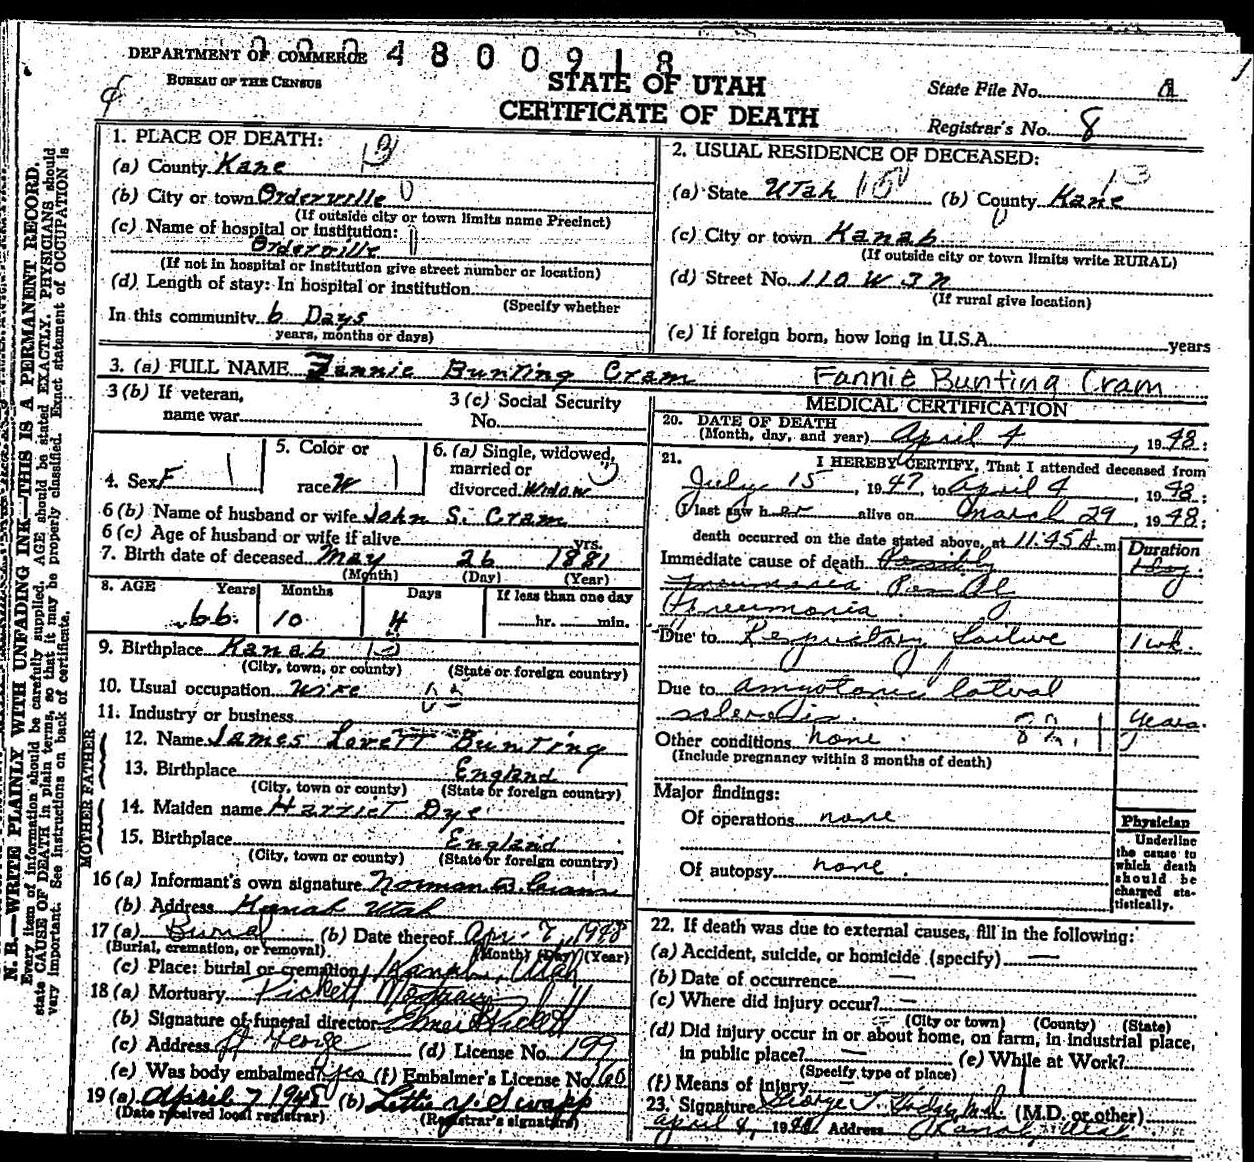 0004800918
DEPARTMENT OF COMMERCE
BUREAU OF THE CENSUS
STATE OF UTAH
CERTIFICATE OF DEATH
State File No.
Registrar's No. 8
N. B.—WRITE PLAINLY WITH UNFADING INK—THIS IS A PERMANENT RECORD.
Every item of information should be carefully supplied. AGE should be stated EXACTLY. PHYSICIANS should
state CAUSE OF DEATH in plain terms, so that it may be properly classified. Exact statement of OCCUPATION is
very important. See instructions on back of certificate.
1. PLACE OF DEATH:
(a) County Kane
(b) City or town Orderville
(If outside city or town limits name Precinct)
(c) Name of hospital or institution:
Orderville
(If not in hospital or institution give street number or location)
(d) Length of stay: In hospital or institution
(Specify whether
In this community 6 Days
years, months or days)
2. USUAL RESIDENCE OF DECEASED:
(a) State Utah (b) County Kane
(c) City or town Kanab
(If outside city or town limits write RURAL)
(d) Street No. 110 W 3 N
(If rural give location)
(e) If foreign born, how long in U.S.A. years
3. (a) FULL NAME Fannie Bunting Cram Fannie Bunting Cram
3 (b) If veteran,
name war
3 (c) Social Security
No.
4. Sex F
5. Color or
race W
6. (a) Single, widowed,
married or
divorced Widow
6 (b) Name of husband or wife John S. Cram
6 (c) Age of husband or wife if alive yrs.
7. Birth date of deceased May 26 1881
(Month) (Day) (Year)
8. AGE Years Months Days If less than one day
66 10 hr. min.
9. Birthplace Kanab
(City, town, or county) (State or foreign country)
10. Usual occupation Wife
11. Industry or business
FATHER
12. Name James Lovett Bunting
13. Birthplace England
(City, town or county) (State or foreign country)
MOTHER
14. Maiden name Harriet Dye
15. Birthplace England
(City, town or county) (State or foreign country)
16 (a) Informant's own signature Norman B. Cram
(b) Address Kanab Utah
17 (a) Burial (b) Date thereof Apr. 7, 1948
(Burial, cremation, or removal) (Month) (Day) (Year)
(c) Place: burial or cremation Kanab, Utah
18 (a) Mortuary Pickett Mortuary
(b) Signature of funeral director Elmer Pickett
(c) Address St George (d) License No. 199
(e) Was body embalmed? yes (f) Embalmer's License No. 160
19 (a) April 7 1948 (b) Letta Y. Swapp
(Date received local registrar) (Registrar's signature)
MEDICAL CERTIFICATION
20. DATE OF DEATH
(Month, day, and year) April 4, 1948:
21. I HEREBY CERTIFY, That I attended deceased from
July 15, 1947, to April 4, 1948:
I last saw her alive on March 29, 1948:
death occurred on the date stated above, at 11:45 A. m.
Duration
Immediate cause of death Possibly 1 day
Pneumonia
Pneumonia
Due to Respiratory Failure 1 wk.
Due to amyotonic lateral
sclerosis. years.
Other conditions none.
(Include pregnancy within 3 months of death)
Major findings:
Of operations none
Of autopsy none.
Physician
Underline
the cause to
which death
should be
charged sta-
tistically.
22. If death was due to external causes, fill in the following:
(a) Accident, suicide, or homicide (specify) —
(b) Date of occurrence —
(c) Where did injury occur? —
(City or town) (County) (State)
(d) Did injury occur in or about home, on farm, in industrial place,
in public place? — (e) While at Work?
(Specify type of place)
(f) Means of injury
23. Signature George (M.D. or other)
April 4, 1948 Address Kanab, Utah